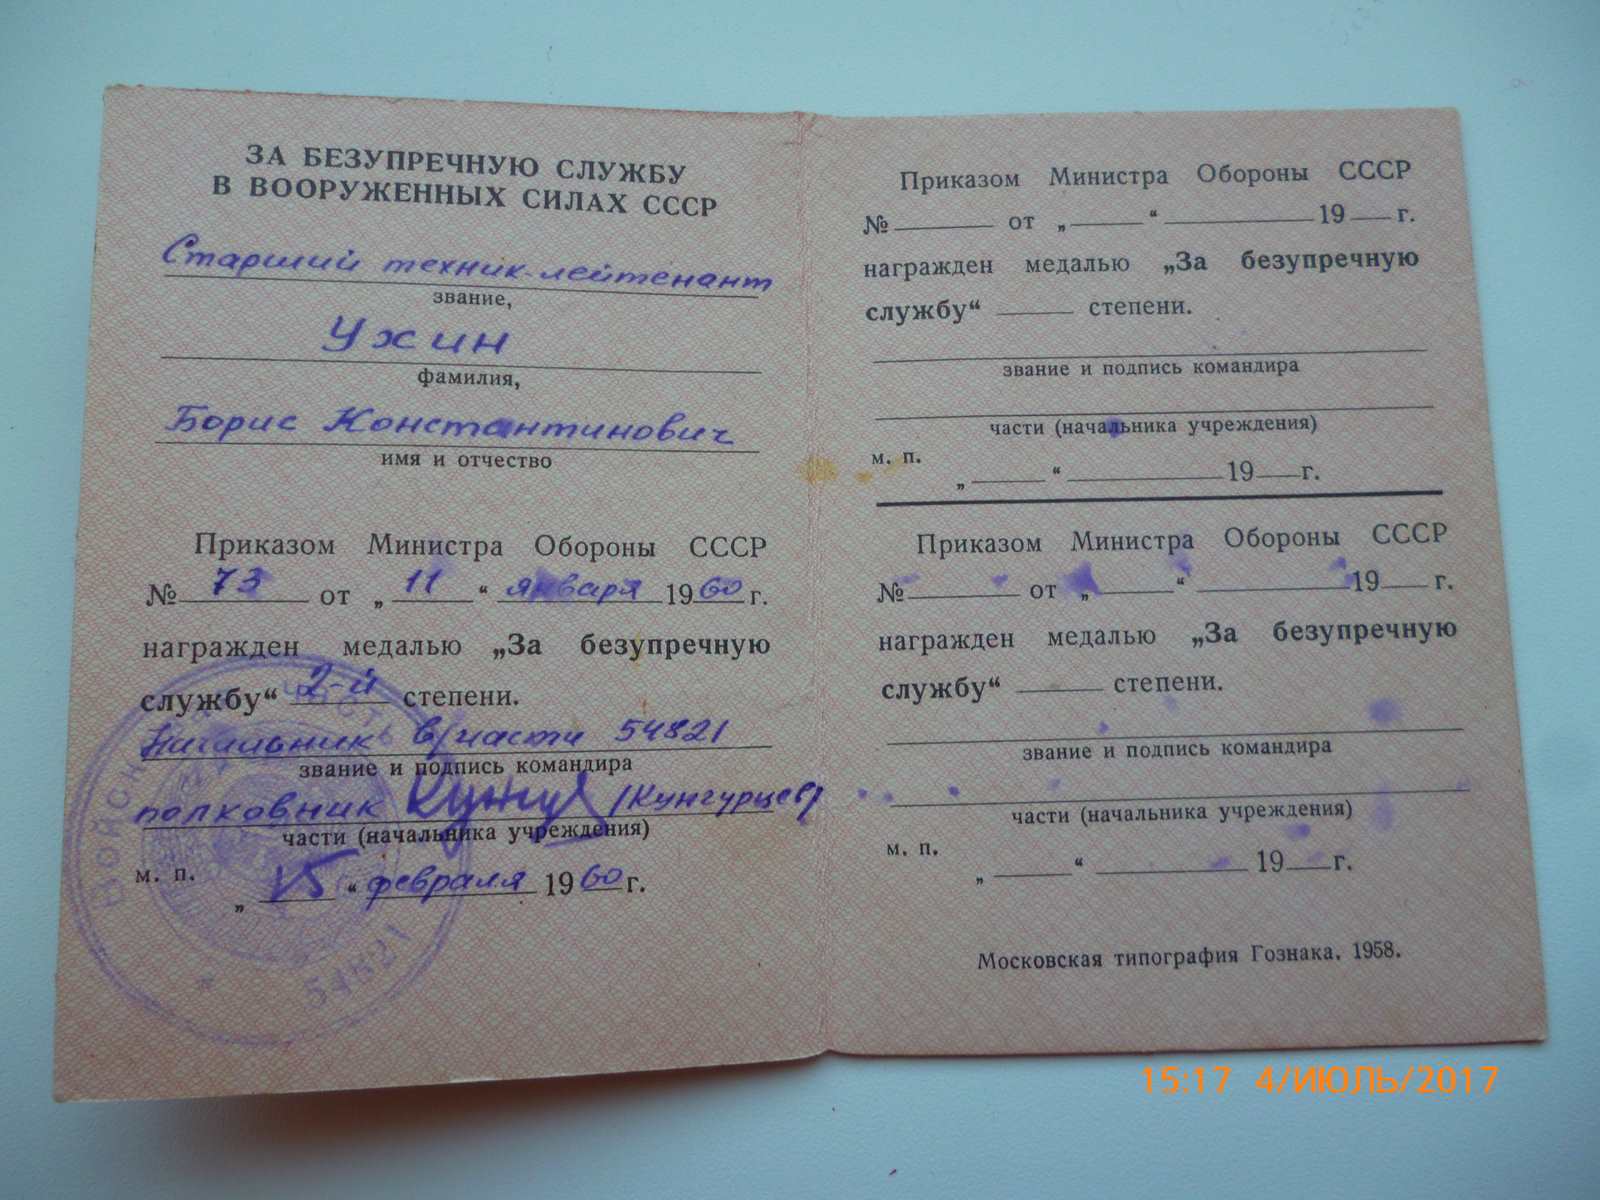 ЗА БЕЗУПРЕЧНУЮ СЛУЖБУ
В ВООРУЖЕННЫХ СИЛАХ СССР
Старший техник-лейтенант
звание,
Ужин
фамилия,
Борис Константинович
имя и отчество
Приказом Министра Обороны СССР
№ 73 от „ 11 “ января 1960 г.
награжден медалью „За безупречную
службу“ 2-й степени.
Начальник в/части 54821
звание и подпись командира
полковник (Кунгурцев)
части (начальника учреждения)
м. п.
„ 15 “ февраля 1960 г.
ВОЙСКОВАЯ ЧАСТЬ
54821
Приказом Министра Обороны СССР
№ от „ “ 19 г.
награжден медалью „За безупречную
службу“ степени.
звание и подпись командира
части (начальника учреждения)
м. п.
„ “ 19 г.
Приказом Министра Обороны СССР
№ от „ “ 19 г.
награжден медалью „За безупречную
службу“ степени.
звание и подпись командира
части (начальника учреждения)
м. п.
„ “ 19 г.
Московская типография Гознака. 1958.
15:17 4/ИЮЛЬ/2017